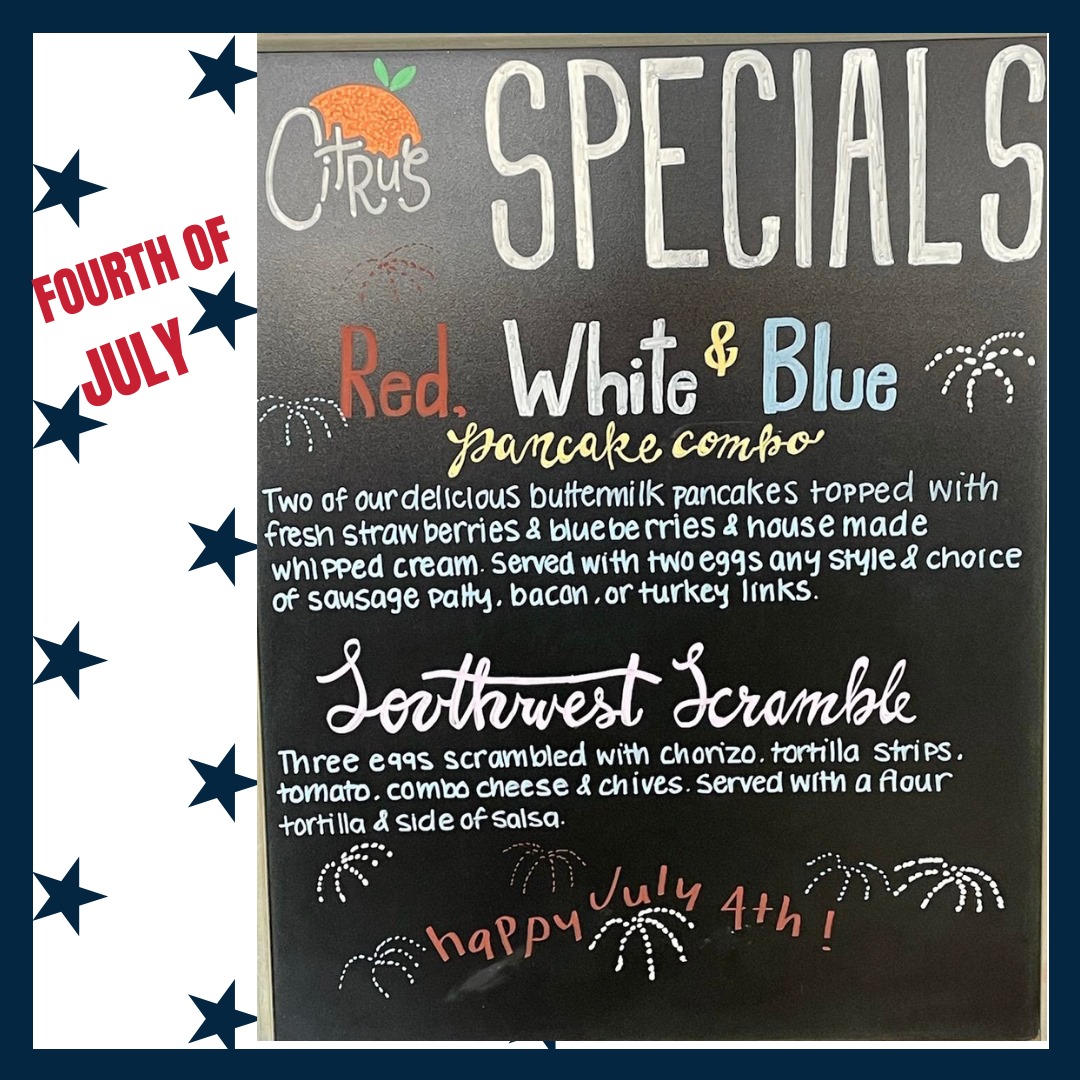 FOURTH OF
JULY
Citrus
SPECIALS
Red, White & Blue
pancake combo
Two of our delicious buttermilk pancakes topped with
fresh strawberries & blueberries & house made
whipped cream. Served with two eggs any style & choice
of sausage patty, bacon, or turkey links.
Southwest Scramble
Three eggs scrambled with chorizo, tortilla strips,
tomato, combo cheese & chives. Served with a flour
tortilla & side of salsa.
happy July 4th!